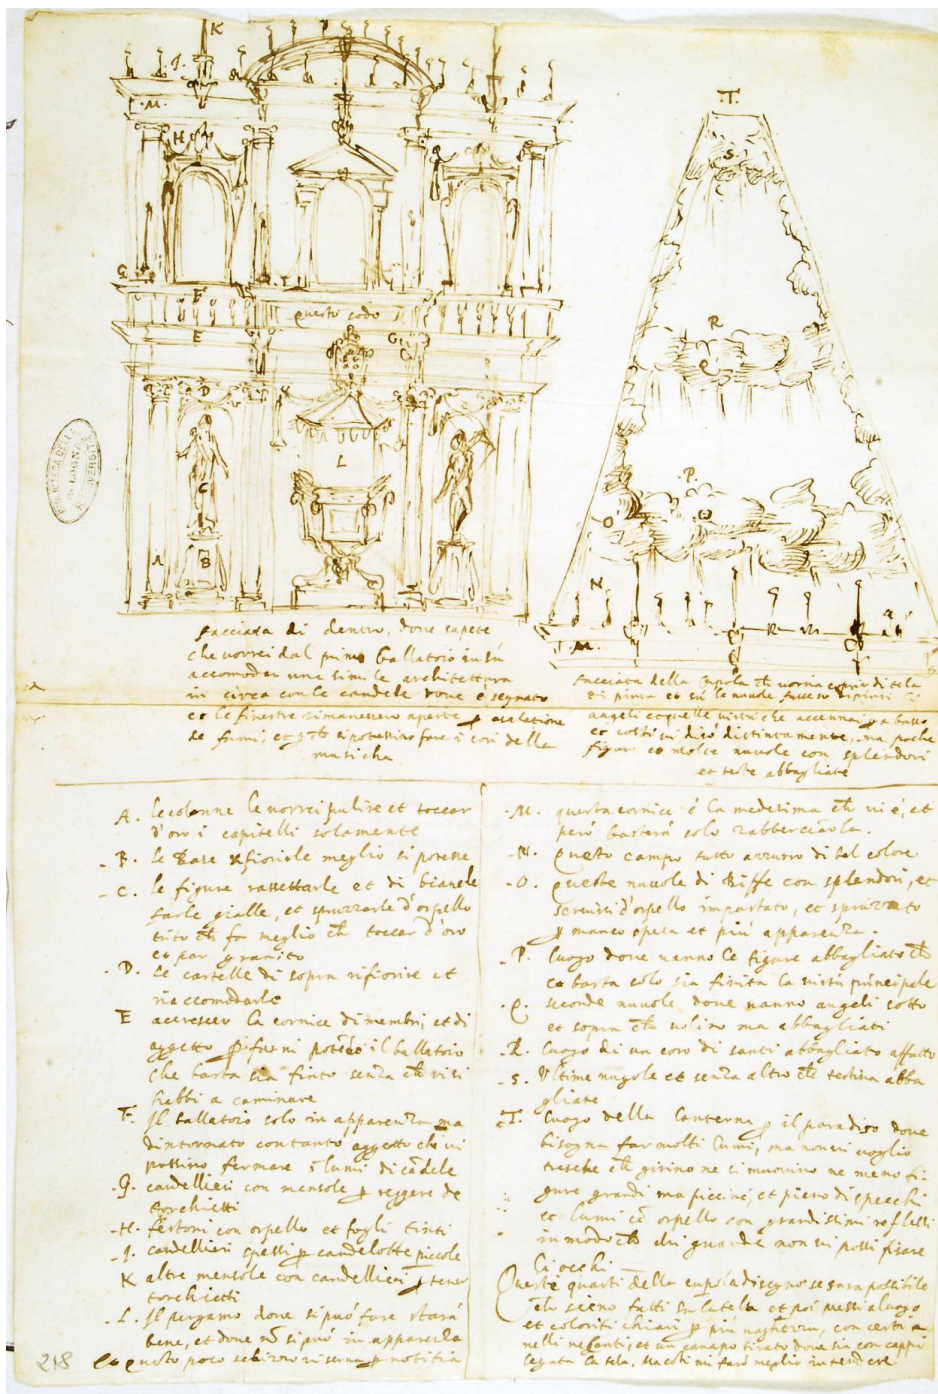 K
I.
.M.
H
G
F
questo sodo
G
E
D
L
C
A
B
.T.
S
R
Q
.P.
O
N
.M.
BIBLIOTECA DELLA
R. UNIVERSITÀ
DI BOLOGNA
facciata di dentro, dove sapete
che vorrei dal primo ballatoio in sù
accomodar una simile architettura
in circa con le candele dove è segnato
et le finestre rimanessero aperte p esalatione
de fumi, et si potessino fare i cori della
musicha
facciata della cupola ch vorria di tela
dipinta et sù le nuvole fussero
angeli et quelle virtù che accennai a basso
et costì vi dirò distintamente, ma poche
figure et molte nuvole con splendori
et teste abbagliate
A. le colonne le vorrei pulire et toccar
d'oro i capitelli solamente
B. le Base rifiorirle meglio si potesse
C. le figure rassettarle et di bianche
farle gialle, et spruzzarle d'orpello
trito ch fa meglio ch toccar d'oro
et par granito
D. le cartelle di sopra rifiorire et
riaccomodarle
E accrescer la cornice di membri, et di
aggetto p farvi il ballatoio
che basta sia finto senza ch vi si
habbi a caminare
F. Il ballatoio solo in apparenza ma
dintornato con tanto aggetto che vi
possino fermare i lumi di cādele
G. candellieri con mensole p reggere de
torchietti
H. festoni con orpello et fogli tinti
I. candellieri spessi p candelotte piccole
K altre mensole con candellieri p tener
torchietti
L. Il pergamo dove si può fare starà
bene, et dove nō si può in apparenza
et questo poco schizzo vi serva p notitia
M. questa cornice é la medesima ch vi é, et
però basterà solo rabberciarla.
N. Questo campo tutto azzurro di bel colore
O. queste nuvole di Biffe con splendori, et
servirsi d'orpello impastato, et spruzzato
p manco spesa et più apparenza.
P. luogo dove vanno le figure abbagliate ch
basta solo sia finita la virtù principale
Q. seconde nuvole dove vanno angeli sotto
et sopra ch volino ma abbagliati
R. luogo di un coro di santi abbagliato affatto
S. Ultime nugole et senza altro ch testina abba
gliate
T. luogo della lanterna p il paradiso dove
bisogna far molti lumi, ma non vi voglio
tresche ch girino ne si muovino ne meno fi-
gure grandi ma piccine, et pieno di specchi
et lumi cō orpello con grandissimi reflessi
in modo ch chi guarda non vi possi fisare
li occhi
Questi quarti della cupola disegno se sara possibile
ch sieno fatti su la tela et poi messi a luogo
et coloriti chiari p più vaghezza, con certi a
nelli, et un canapo tirato dove sia con cappi
legata la tela. Ma costi mi farò meglio intendere
218